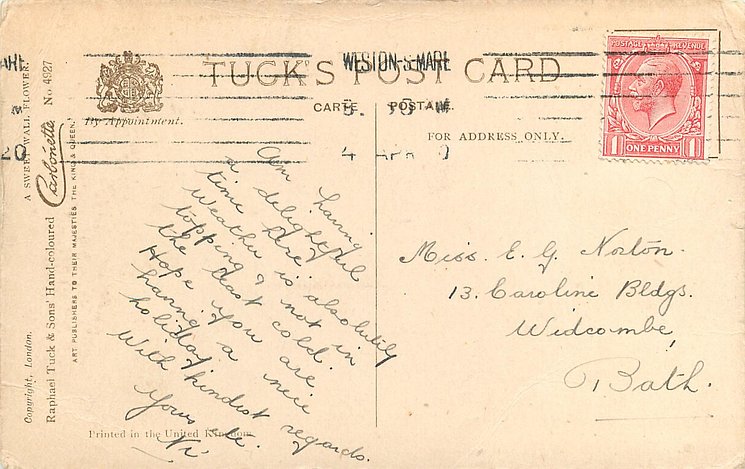 TUCK'S POST CARD
CARTE POSTALE
By Appointment.
FOR ADDRESS ONLY.
WESTON-S-MARE
4 APR
POSTAGE REVENUE
1 ONE PENNY 1
A SWEET WALL FLOWER.
Carbonette No 4927
Copyright, London.
Raphael Tuck & Sons' Hand-coloured
ART PUBLISHERS TO THEIR MAJESTIES THE KING & QUEEN.
Am having
a delightful
time here.
Weather is absolutely
topping & not in
the least cold.
Hope you are
having a nice
holiday.
With kindest regards.
Yours
Printed in the United Kingdom
Miss. E. G. Norton.
13. Caroline Bldgs.
Widcombe,
Bath.